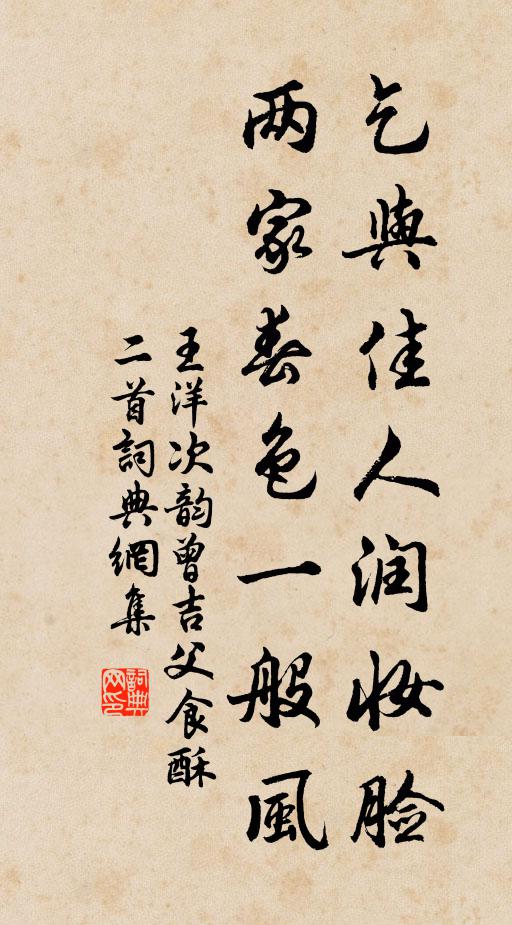 乞與佳人润妝脸
两家春色一般風
王洋次韵曾吉父食酥
二首詞典網集
詞典网印